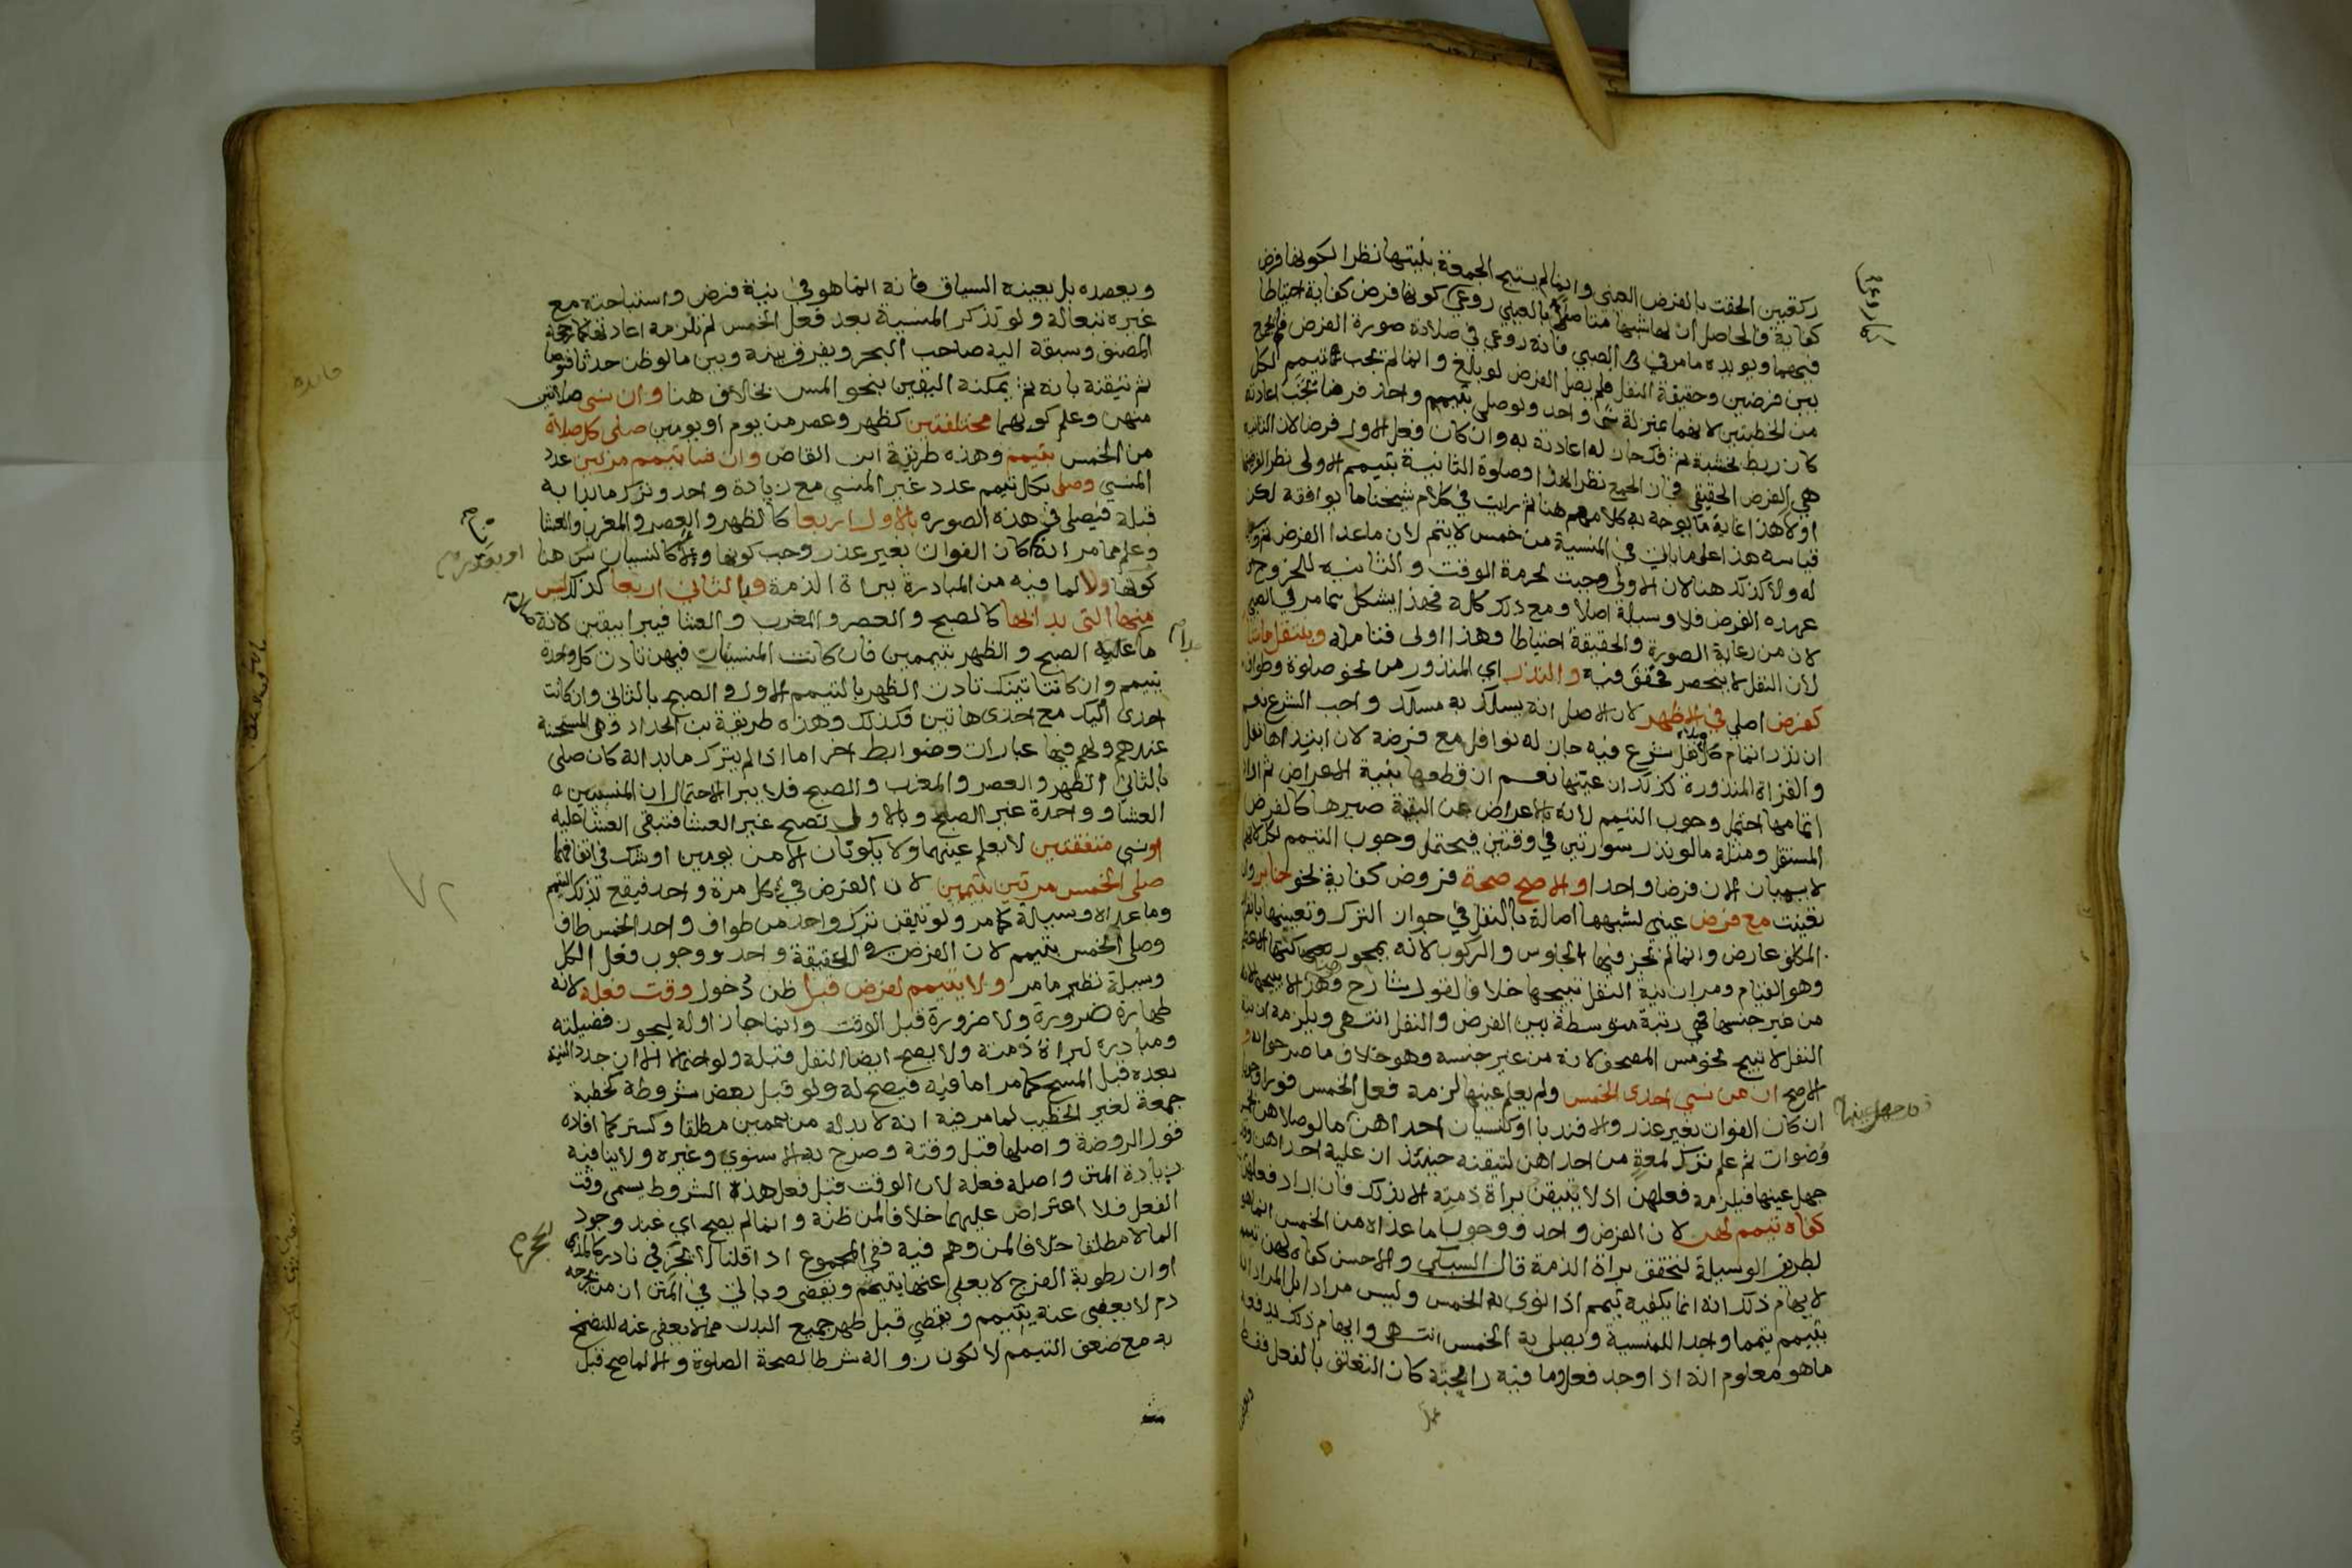 ركعتين الحقت بالفرض العيني وانما لم يستبح الجمعة بنيتها نظرا لكونها فرض
كفاية فالحاصل ان لها شبها متاصلا بالعيني روعي كونها فرض كفاية احتياطا
فيهما ويويده مامر في الصبي فانه روعي في صلاته صورة الفرض فلم يجمع
بين فرضين وحقيقة النفل فلم يصل الفرض لو بلغ وانما لم يجب تيمم لكل
من الخطبتين لانهما بمنزلة شي واحد ولو صلى بتيمم واحد فرضا تجب اعادته
كان ربط بخشبة ثم فك جاز له اعادته به وان كان فعل الاول فرضا لان الثانية
هي الفرض الحقيقي فجاز الجمع نظرا لهذا وصلوة الثانية بتيمم الاولى نظرا لفرضها
اولا هذا غاية ما يوجه به كلامهم هنا ثم رايت في كلام شيخنا ما يوافقه لكن
قياسه هذا على ما ياتي في المنسية من خمس لا يتم لان ما عدا الفرض ثم وسيلة
له ولا كذلك هنا لان الاولى وجبت لحرمة الوقت والثانية للخروج عن
عهدة الفرض فلا وسيلة اصلا ومع ذلك كله فهذا يشكل بما مر في الصبي
لان من رعاية الصورة والحقيقة احتياطا وهذا اولى فتامله ويتنفل ما شا
لان النفل لا ينحصر فخفف فيه والنذر اي المنذور من نحو صلوة وطواف
كفرض اصلي في الاظهر لان الاصل انه يسلك به مسلك واجب الشرع نعم
ان نذر اتمام كل نفل شرع فيه جاز له نوافل مع فرضه لان ابتداها نفل
والقراة المنذورة كذلك ان عينها نعم ان قطعها بنية الاعراض ثم اراد
اتمامها احتمل وجوب التيمم لانه بالاعراض عن البقية صيرها كالفرض
المستقل ومثله ما لو نذر سورتين في وقتين فيحتمل وجوب التيمم لكل لانهما
لا يسميان الان فرضا واحدا والاصح صحة فروض كفاية نحو جنايز وان
تعينت مع فرض عيني لشبهها اصالة بالنفل في جواز الترك وتعينها بانفراد
المكلف عارض وانما لم يجز فيها الجلوس والركوب لانه يمحو ركنها الاعظم
وهو القيام ومر ان نية النفل تبيحها خلافا لقول شارح وهذا لا يبيحها لانه
من غير جنسها فهي رتبة متوسطة بين الفرض والنفل انتهى ويلزمه ان نية
النفل لا تبيح نحو مس المصحف لانه من غير جنسه وهو خلاف ما صرحوا به و
الاصح ان من نسي احدى الخمس ولم يعلم عينها لزمه فعل الخمس فورا وجوبا
ان كان الفوات بغير عذر والا فندبا او كنسيان احداهن ما لو صلاهن بخمس
وضوات ثم علم ترك لمعة من احداهن لتيقنه حينئذ ان عليه احداهن وقد
جهل عينها فيلزمه فعلهن اذ لا يتيقن براة ذمته الا بذلك فان اراد فعلهن
كفاه تيمم لهن لان الفرض واحد ووجوب ما عداه من الخمس انما هو
لطريق الوسيلة لتتحقق براة الذمة قال السبكي والاحسن كفاه لهن تيمم
لايهام ذلك انه انما يكفيه تيمم اذا نوى به الخمس وليس مرادا بل المراد انه
بتيمم تيمما واحدا للمنسية ويصلي به الخمس انتهى وايهام ذلك يدفعه
ما هو معلوم انه اذا وجد فعل وما فيه رايحته كان التعلق بالفعل فقط
جهل عينها
ويعضده بل يعينه السياق فانه انما هو في نية فرض واستباحته مع
غيره تبعا له ولو تذكر المنسية بعد فعل الخمس لم تلزمه اعادتها كما رجحه
المصنف وسبقه اليه صاحب البحر ويفرق بينه وبين ما لو ظن حدثا فتوضا
ثم تيقنه بانه ثم يمكنه اليقين بنحو المس بخلاف هنا وان نسي صلاتين
منهن وعلم كونهما مختلفتين كظهر وعصر من يوم او يومين صلى كل صلاة
من الخمس بتيمم وهذه طريقة ابن القاص وان شا تيمم مرتين عدد
المنسي وصلى بكل تيمم عدد غير المنسي مع زيادة واحد وترك ما بدا به
قبله فيصلي في هذه الصورة بالاول اربعا كالظهر والعصر والمغرب والعشا
وعلم مما مر انه ان كان الفوات بغير عذر وجب كونها ولا كالنسيان سن هنا
كونها ولا لما فيه من المبادرة ببراة الذمة وبالثاني اربعا كذلك ليس
منها التي بدا بها كالصبح والعصر والمغرب والعشا فيبرا بيقين لانه
ما عليه الصبح والظهر بتيممين فان كانت المنسيتان فيهن تادت كل واحدة
بتيمم وان كانتا تينك تادت الظهر بالتيمم الاول والصبح بالثاني وان كانت
احدى اليك مع احدى هاتين فكذلك وهذه طريقة بن الحداد وهي المستحسنة
عندهم ولهم فيها عبارات وضوابط اخر اما اذا لم يترك ما بدا به كان صلى
بالثاني الظهر والعصر والمغرب والصبح فلا يبرا لاحتمال ان المنسيتين
العشا وواحدة غير الصبح وبالاول تصح غير العشا فتبقى العشا عليه
او نسي متفقتين لا يعلم عينهما ولا يكونان الا من يومين او شك في اتفاقهما
صلى الخمس مرتين بتيممين لان الفرض في كل مرة واحد فيقع لذلك التيمم
وما عداه وسيلة كما مر ولو تيقن ترك واحد من طواف واحد الخمس طاف
وصلى الخمس بتيمم لان الفرض في الحقيقة واحد ووجوب فعل الكل
وسيلة نظير ما مر ولا يتيمم لفرض قبل ظن دخول وقت فعله لانه
طهارة ضرورة ولا ضرورة قبل الوقت وانما جاز اوله ليحوز فضيلته
ومبادرة لبراة ذمته ولا يصح ايضا النفل قبله ولو احتمالا الا ان جدد النية
بعده قبل المسح كما مر اما فيه فيصح له ولو قبل بعض شروطه كخطبة
جمعة لغير الخطيب لما مر فيه انه لا بد له من تيممين مطلقا وكستر كما افاده
قول الروضة واصلها قبل وقته وصرح به الاسنوي وغيره ولا ينافيه
زيادة المتن واصله فعله لان الوقت قبل فعل هذه الشروط يسمى وقت
الفعل فلا اعتراض عليهما خلافا لمن ظنه وانما لم يصح اي عند وجود
الما لا مطلقا خلافا لمن وهم فيه ففي المجموع اذا قلنا لا يجزي في نادر كالمذي
او ان رطوبة الفرج لا يعفى عنها يتيمم وتقضى وياتي في المتن ان من بجرحه
دم لا يعفى عنه يتيمم ويقضي قبل طهر جميع البدن مما لا يعفى عنه للتضمخ
به مع ضعف التيمم لا لكون زواله شرطا لصحة الصلوة والا لما صح قبل